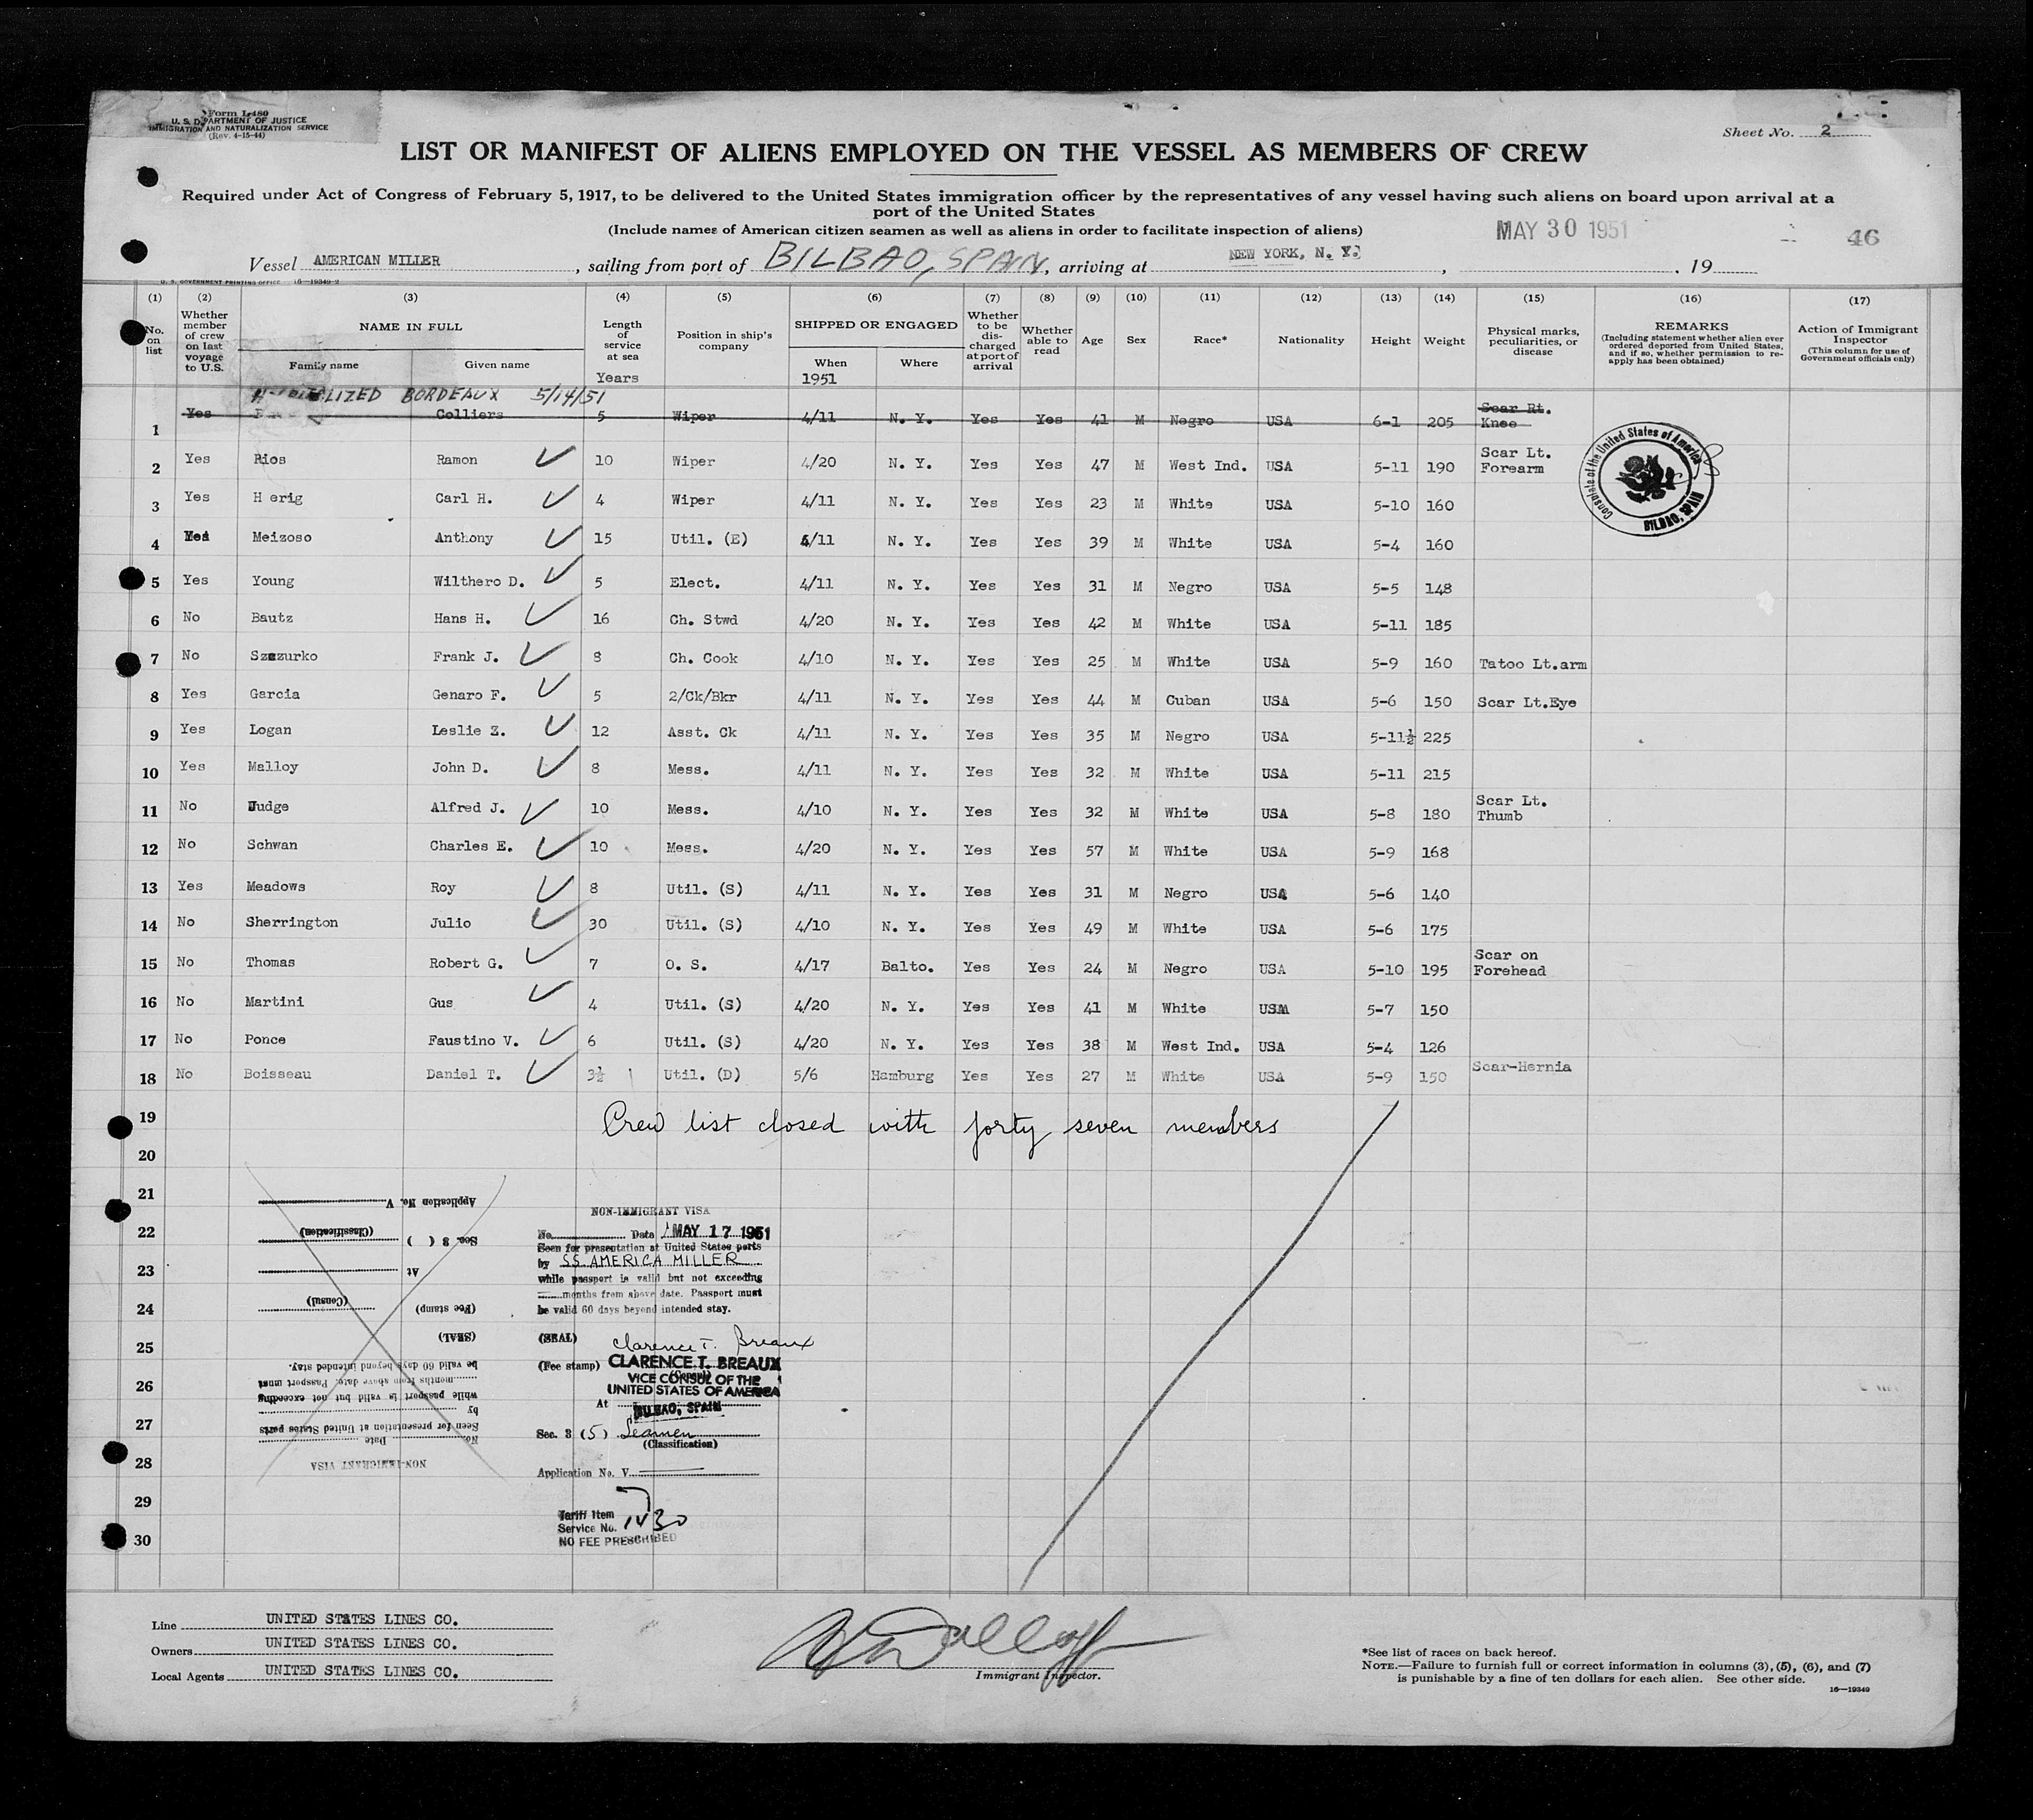 Form I-480
U. S. DEPARTMENT OF JUSTICE
IMMIGRATION AND NATURALIZATION SERVICE
(Rev. 4-15-44)
Sheet No. 2
LIST OR MANIFEST OF ALIENS EMPLOYED ON THE VESSEL AS MEMBERS OF CREW
Required under Act of Congress of February 5, 1917, to be delivered to the United States immigration officer by the representatives of any vessel having such aliens on board upon arrival at a
port of the United States
(Include names of American citizen seamen as well as aliens in order to facilitate inspection of aliens)
MAY 30 1951
46
Vessel AMERICAN MILLER, sailing from port of BILBAO, SPAIN, arriving at NEW YORK, N. Y., 19
U. S. GOVERNMENT PRINTING OFFICE 16-19349-2
(1) (2) (3) (4) (5) (6) (7) (8) (9) (10) (11) (12) (13) (14) (15) (16) (17)
No. on list
Whether member of crew on last voyage to U.S.
NAME IN FULL
Family name
Given name
Length of service at sea
Years
Position in ship's company
SHIPPED OR ENGAGED
When
1951
Where
Whether to be discharged at port of arrival
Whether able to read
Age
Sex
Race*
Nationality
Height
Weight
Physical marks, peculiarities, or disease
REMARKS
(Including statement whether alien ever ordered deported from United States, and if so, whether permission to re-apply has been obtained)
Action of Immigrant Inspector
(This column for use of Government officials only)
HOSPITALIZED BORDEAUX 5/14/51
1 Yes Colliers 5 Wiper 4/11 N. Y. Yes Yes 41 M Negro USA 6-1 205 Scar Rt. Knee
2 Yes Rios Ramon 10 Wiper 4/20 N. Y. Yes Yes 47 M West Ind. USA 5-11 190 Scar Lt. Forearm
3 Yes H erig Carl H. 4 Wiper 4/11 N. Y. Yes Yes 23 M White USA 5-10 160
4 Yes Meizoso Anthony 15 Util. (E) 4/11 N. Y. Yes Yes 39 M White USA 5-4 160
5 Yes Young Wilthero D. 5 Elect. 4/11 N. Y. Yes Yes 31 M Negro USA 5-5 148
6 No Bautz Hans H. 16 Ch. Stwd 4/20 N. Y. Yes Yes 42 M White USA 5-11 185
7 No Szezurko Frank J. 8 Ch. Cook 4/10 N. Y. Yes Yes 25 M White USA 5-9 160 Tatoo Lt.arm
8 Yes Garcia Genaro F. 5 2/Ck/Bkr 4/11 N. Y. Yes Yes 44 M Cuban USA 5-6 150 Scar Lt.Eye
9 Yes Logan Leslie Z. 12 Asst. Ck 4/11 N. Y. Yes Yes 35 M Negro USA 5-11½ 225
10 Yes Malloy John D. 8 Mess. 4/11 N. Y. Yes Yes 32 M White USA 5-11 215
11 No Judge Alfred J. 10 Mess. 4/10 N. Y. Yes Yes 32 M White USA 5-8 180 Scar Lt. Thumb
12 No Schwan Charles E. 10 Mess. 4/20 N. Y. Yes Yes 57 M White USA 5-9 168
13 Yes Meadows Roy 8 Util. (S) 4/11 N. Y. Yes Yes 31 M Negro USA 5-6 140
14 No Sherrington Julio 30 Util. (S) 4/10 N. Y. Yes Yes 49 M White USA 5-6 175
15 No Thomas Robert G. 7 O. S. 4/17 Balto. Yes Yes 24 M Negro USA 5-10 195 Scar on Forehead
16 No Martini Gus 4 Util. (S) 4/20 N. Y. Yes Yes 41 M White USA 5-7 150
17 No Ponce Faustino V. 6 Util. (S) 4/20 N. Y. Yes Yes 38 M West Ind. USA 5-4 126
18 No Boisseau Daniel T. 3½ Util. (D) 5/6 Hamburg Yes Yes 27 M White USA 5-9 150 Scar-Hernia
Consulate of the United States of America
BILBAO, SPAIN
19 Crew list closed with forty seven members
20
21
22
23
24
25
26
27
28
29
30
Application No. V
(Classification)
Sec. 3 ( )
At
(Consul)
(Fee stamp)
(SEAL)
be valid 60 days beyond intended stay.
months from above date. Passport must
while passport is valid but not exceeding
by
Seen for presentation at United States ports
No. Date
NON-IMMIGRANT VISA
NON-IMMIGRANT VISA
No. Date MAY 17 1951
Seen for presentation at United States ports
by SS AMERICA MILLER
while passport is valid but not exceeding
months from above date. Passport must
be valid 60 days beyond intended stay.
(SEAL) Clarence T. Breaux
(Fee stamp) CLARENCE T. BREAUX
(Consul)
VICE CONSUL OF THE
UNITED STATES OF AMERICA
At BILBAO, SPAIN
Sec. 3 (5) Seamen
(Classification)
Application No. V
Tariff Item
Service No. 30
NO FEE PRESCRIBED
Line UNITED STATES LINES CO.
Owners UNITED STATES LINES CO.
Local Agents UNITED STATES LINES CO.
Immigrant Inspector.
*See list of races on back hereof.
NOTE.—Failure to furnish full or correct information in columns (3), (5), (6), and (7)
is punishable by a fine of ten dollars for each alien. See other side.
16—19349